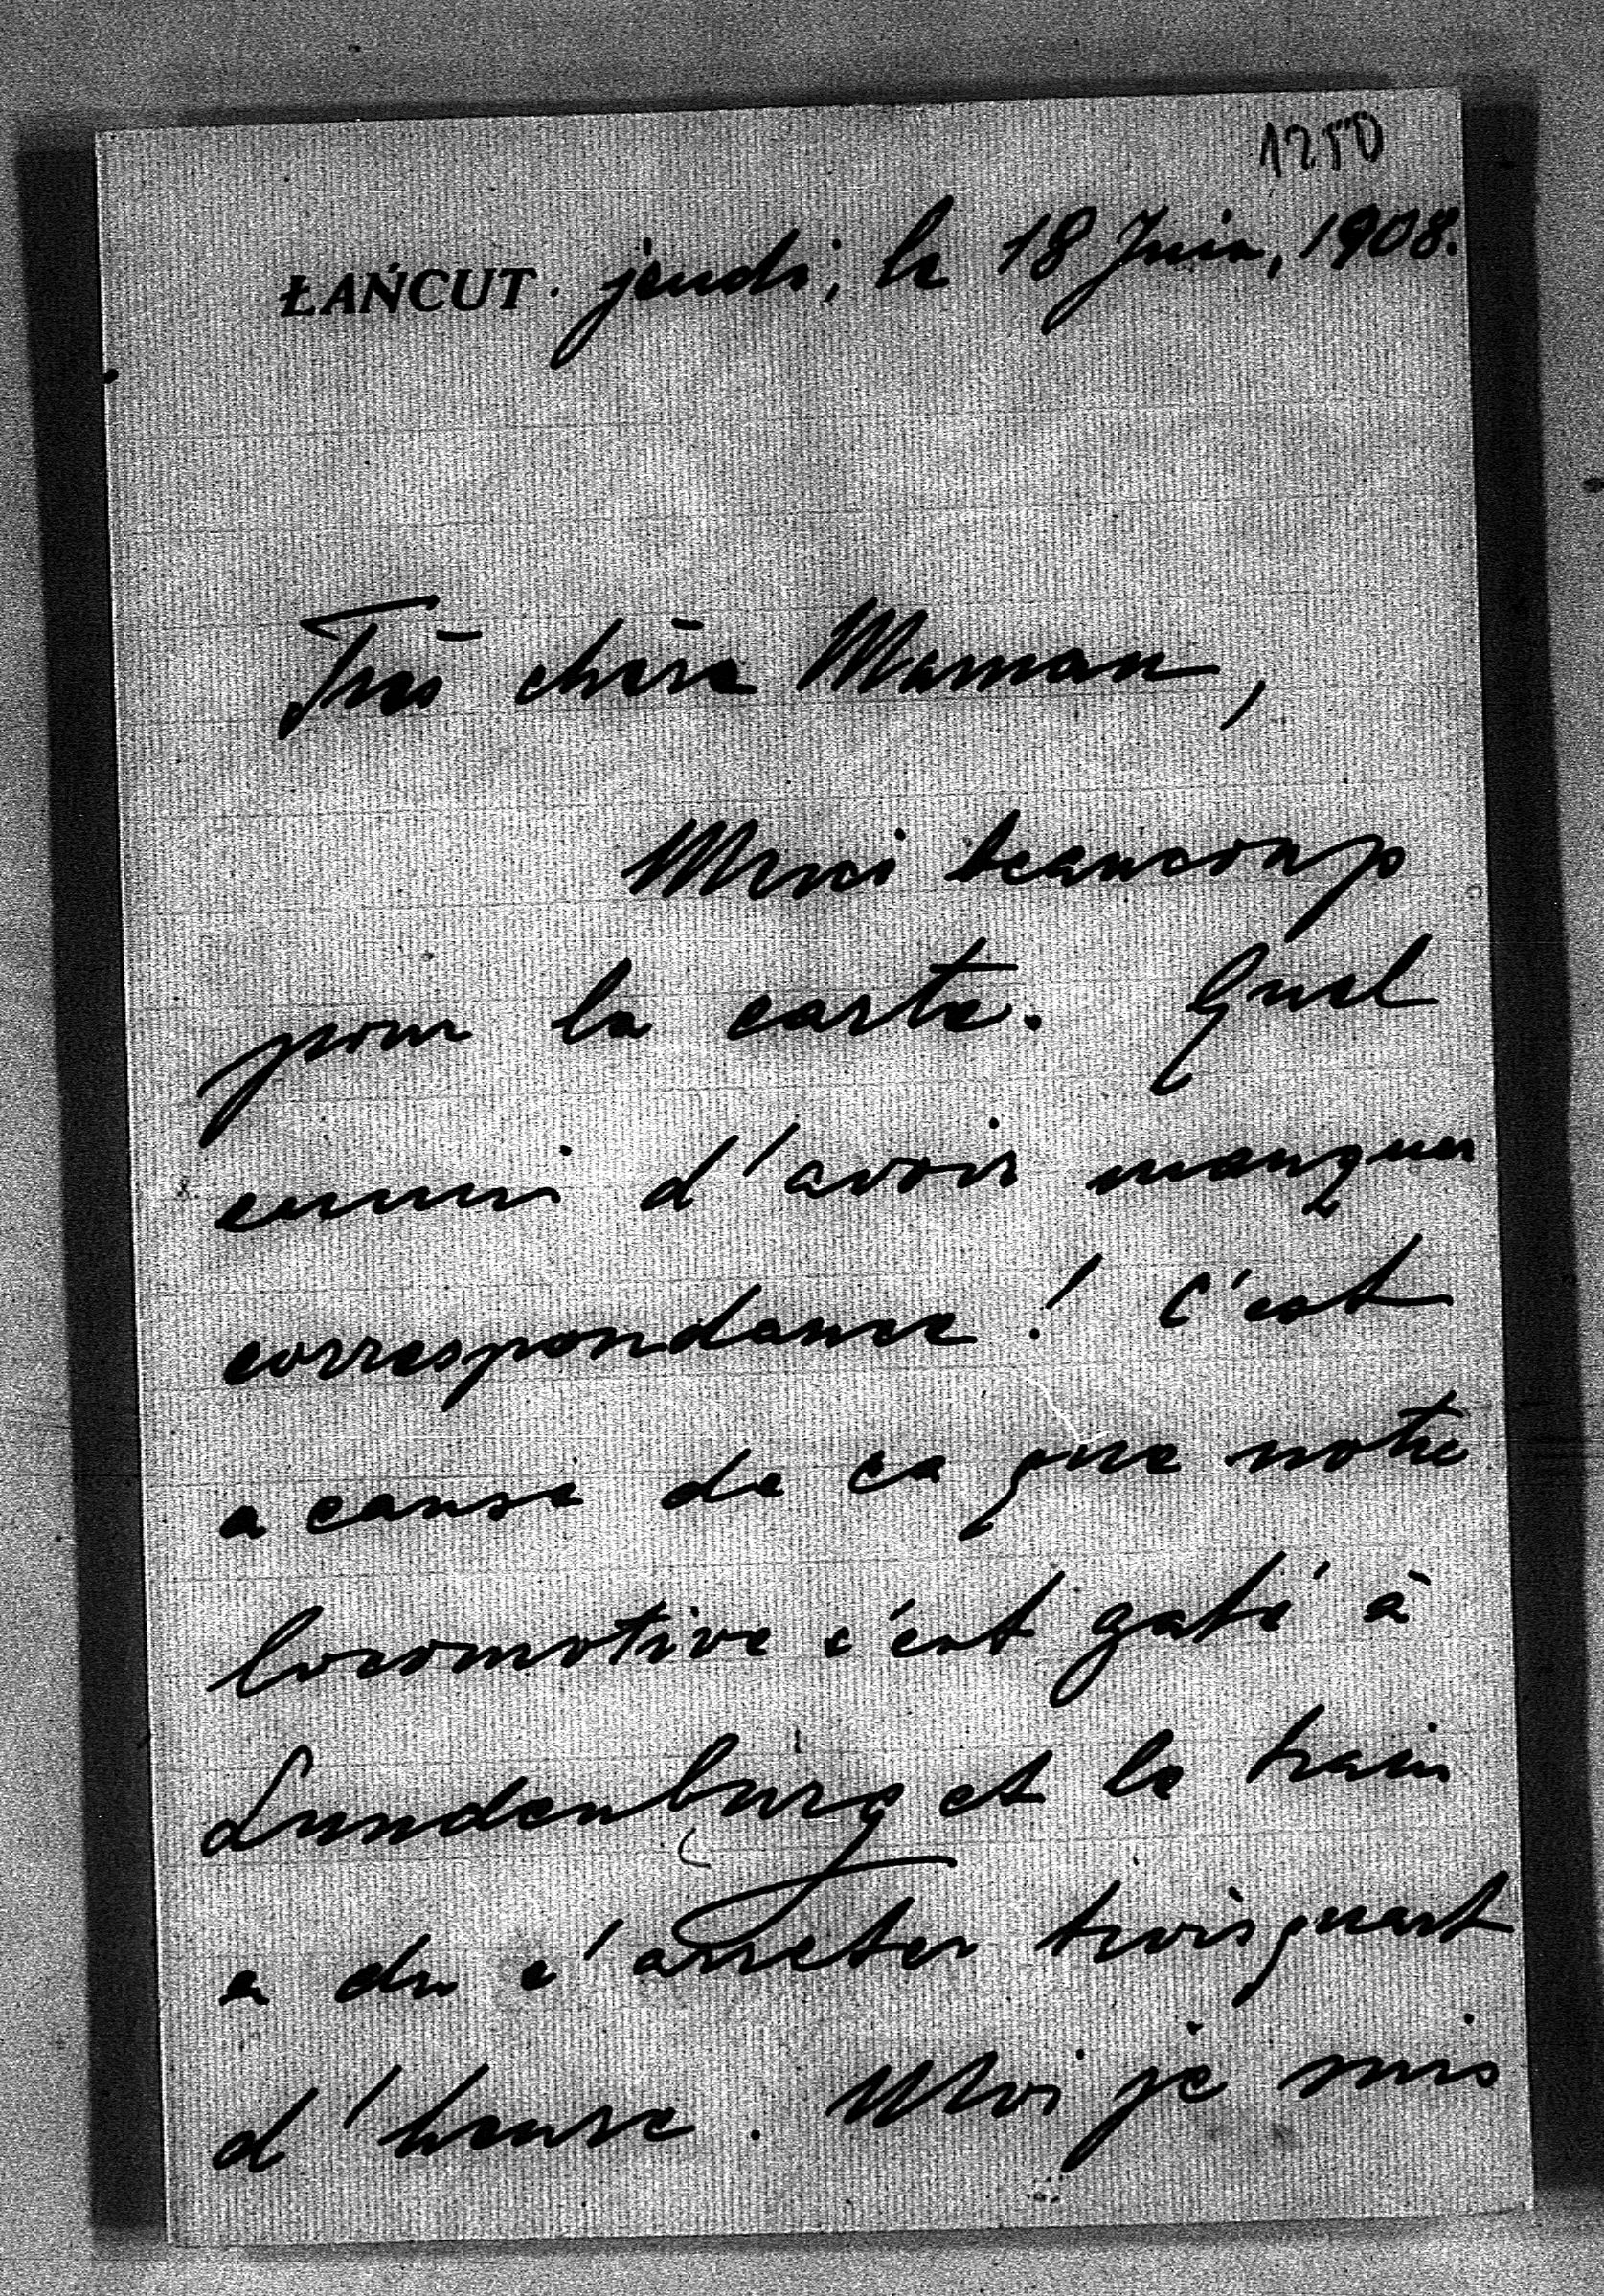 1250
ŁAŃCUT. jeudi, le 18 Juin, 1908.
Très chère Maman,
Merci beaucoup
pour la carte. Quel
ennui d'avoir manquer
correspondance! C'est
a cause de ce que notre
locomotive c'est gaté à
Lundenburg et le train
a du c'arreter trois quart
d'heure. Moi je suis